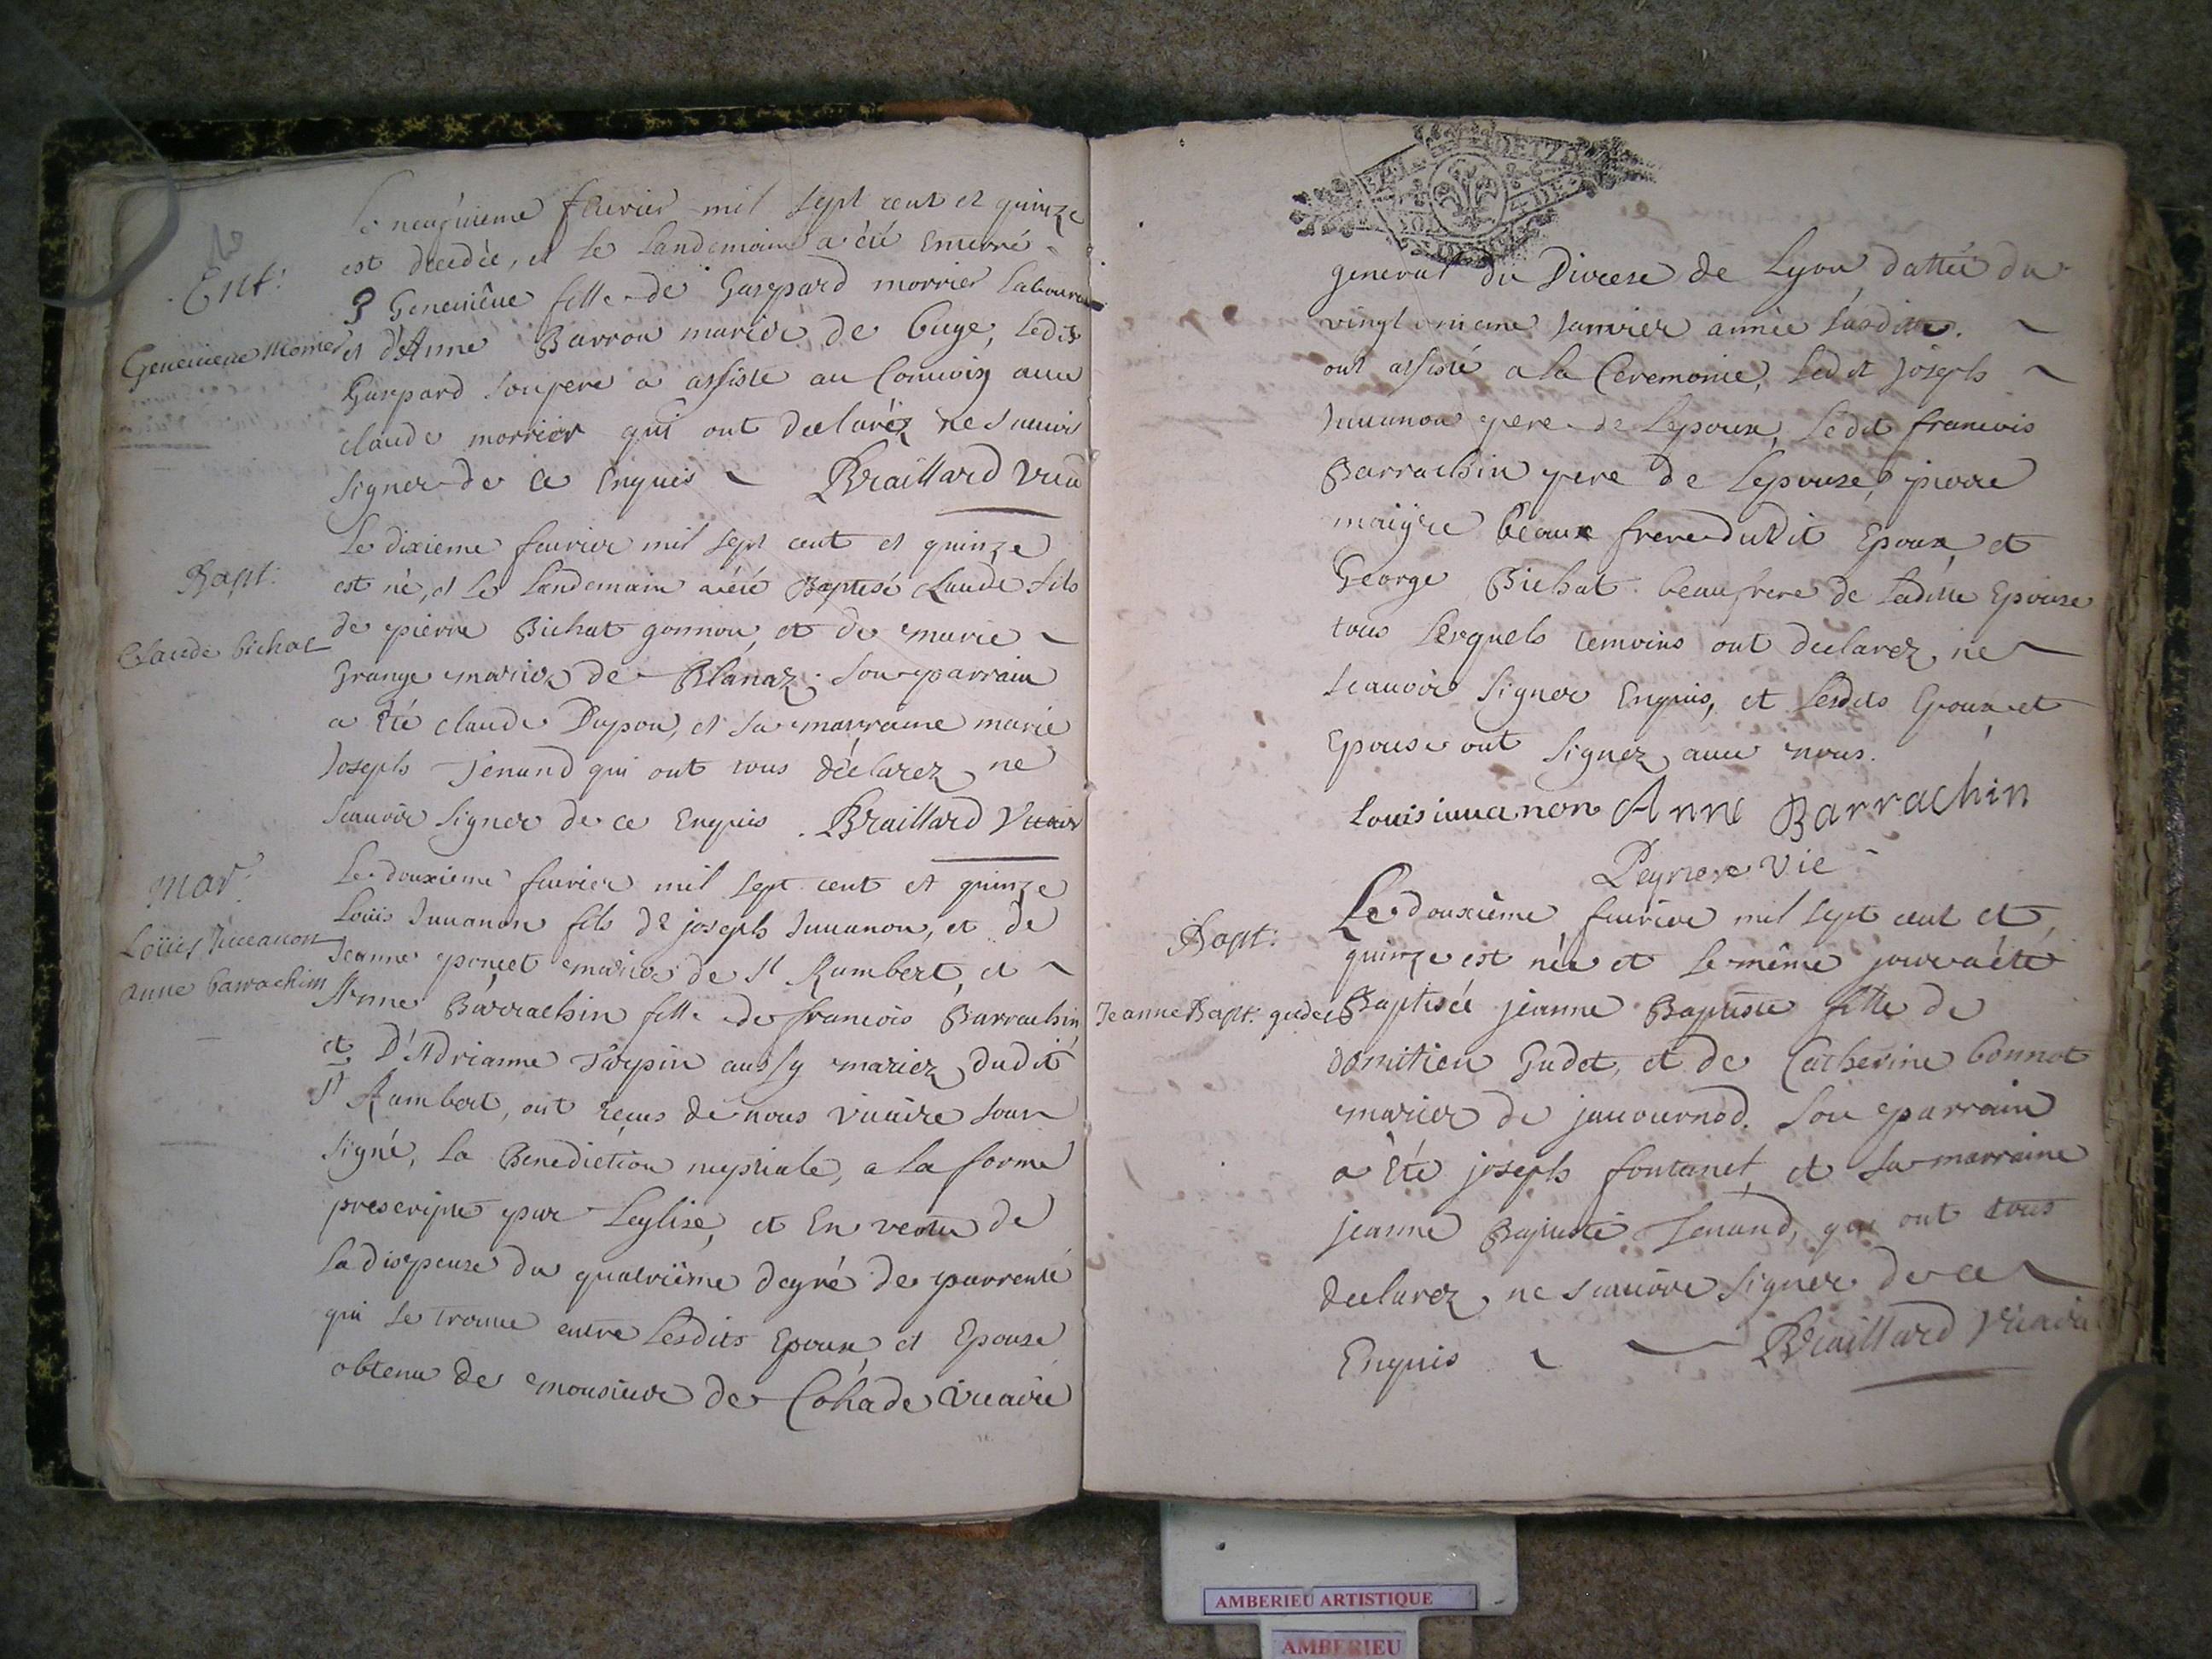 Le neufuieme feurier mil sept cent et quinze
est decedée, et le landemain a été enterré
Ent:
Geneuieue fille de Gaspard morrier laboureur
Geneuieue Morrier
et d'Anne Barron mariez de Buge, ledit
Gaspard son pere a assiste au conuoy auec
claude morrier qui ont declaréz ne scauoir
signer de ce Enquis Braillard Vic
Le dixieme feurier mil sept cent et quinze
Bapt:
est né, et le landemain a été Baptisé Claude fils
de pierre Bichat gonnon, et de marie
Claude bichat
Grange mariez de Blanaz; son parrain
a été claude Dupon, et sa marraine marie
Joseph Jenand qui ont tous déclarez ne
scauoir signer de ce Enquis. Braillard Vicair
Le douxieme feurier mil sept cent et quinze
Mar:
Loüis Juuanon fils de joseph Juuanon, et de
Loüis Juuanon
Jeanne ponçet mariez de St Rambert, et
anne barrachin
Anne Barrachin fille de francois Barrachin
et D'Adrianne Tarpin aussy mariez dudit
St Rambert, ont reçus de nous vicaire sous
signé, la Benediction nuptiale, a la forme
prescripte par Leglise, et En vertu de
la dispense du quatriéme degré de parrenté
qui se trouue entre lesdits Epoux et Epouse
obtenu de monsieur de Cohade Vicaire
general du Diocese de Lyon, dattée du
vingt unieme Januier année susditte.
ont assisté a la Ceremonie, ledit Joseph
Juuanon pere de Lepoux, ledit francois
Barrachin pere de Lepouse, pierre
maigre beaux frere dudit Epoux et
George Bichat beaufrere de ladite Epouse
tous lesquels temoins ont declarez ne
scauoir signer Enquis, et lesdits Epoux et
Epouse ont signez auec nous.
Louis iuuanon Anne Barrachin
Peyriere Vic
Le douxiéme feurier mil sept cent et
Bapt:
quinze est née et le même jour a été
Jeanne Bapt: gudet
Baptisée jeanne Baptiste fille de
domitien Gudet, et de Catherine bonnot
mariez de jauournod. Son parrain
a été joseph fontanet, et sa marraine
jeanne Baptiste Jenand, qui ont tous
declarez ne scauoir signer de ce
Enquis Braillard Vicaire
AMBERIEU ARTISTIQUE
AMBERIEU